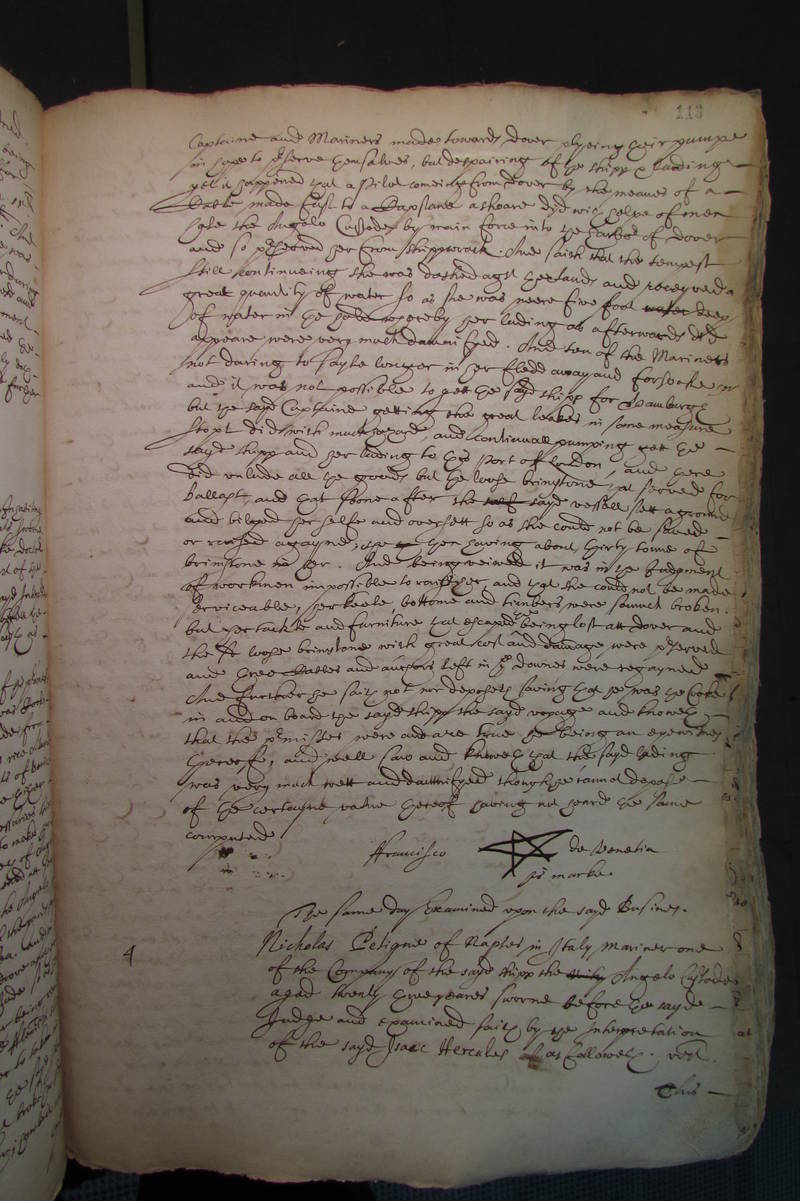 113
Captaine and Mariners made towards dover plyeing their pumpe
in hope to p'serve themselves, but despairing of the shipp & lading
yet it happened that a Pilot comeing from dover by the meanes of a
Cable made fast to a Capstane a shoare dyd with helpe of men
hale the Angelo Custode by main force into the harbor of dover
and so p'served her from shippwrack. And saith that the tempest
still continueing she was dashed agt the land, and receyved a
great quantity of water so as she was neere five foot water deep
of water in the hold whereby her lading as afterwards did
appeare were very much damnifyed. And ten of the Mariners
not daring to sayle longer in her fledd away and forsooke her
and it was not possible to gett the sayd shipp for Hamburgh
but the sayd Captaine getting the great leakes in some measure
stopt did with much hazard, and continuall pumping gett the
sayd shipp and her lading to this Port of London, and here
did unlade all the goods but the loose brimstone that served for
ballast, and that soone after the said sayd vessell sett aground
and bilged her selfe and oversett so as she could not be saved
or raised agayne, she then having about thirty tonne of
brimstone in her. And being veiwed it was in the Judgment
of workmen impossible to raise her, and that she could not be made
serviceable, her keele bottome and timbers were soe much broken.
but her tackle and furniture that escaped being lost att dover and
the loose brimstone with great cost and damage were p'served
and three Cables and anchors left in the downes were regayned
And further he saith not nor deposeth saving that he was the Cooke
in and on board the sayd shipp the sayd voyage and knoweth
that the p'misses were and are true he being an eyewitnes
thereof, and well saw and knoweth that the sayd lading
was very much wett and damnifyed though he cannot depose
of the certayne value thereof having not heard the same
computed
ffrancisco de Venetia
his marke.
The same day Examined upon the sayd Busines.
4
Nicholas Petigne of Naples in Italy Mariner one
of the Company of the sayd shipp the Angelo Custode
aged twenty three yeares sworne before the sayd
Judge and examined saith by the Interpretation
of the sayd Isaac Hercules as followeth. vizt.
This